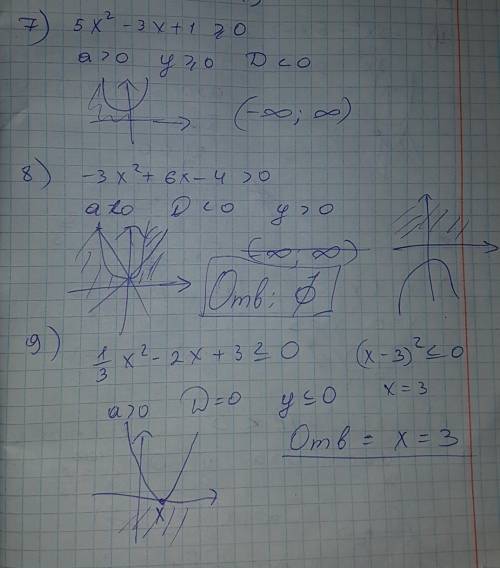 7) 5x² - 3x + 1 ⩾ 0
a > 0 y ⩾ 0 D < 0
(-∞; ∞)
8) -3x² + 6x - 4 > 0
a < 0 D < 0 y > 0
(-∞; ∞)
Отв: Ø
9) 1/3 x² - 2x + 3 ≤ 0 (x - 3)² ≤ 0
x = 3
a > 0 D = 0 y ≤ 0
Отв = x = 3
x